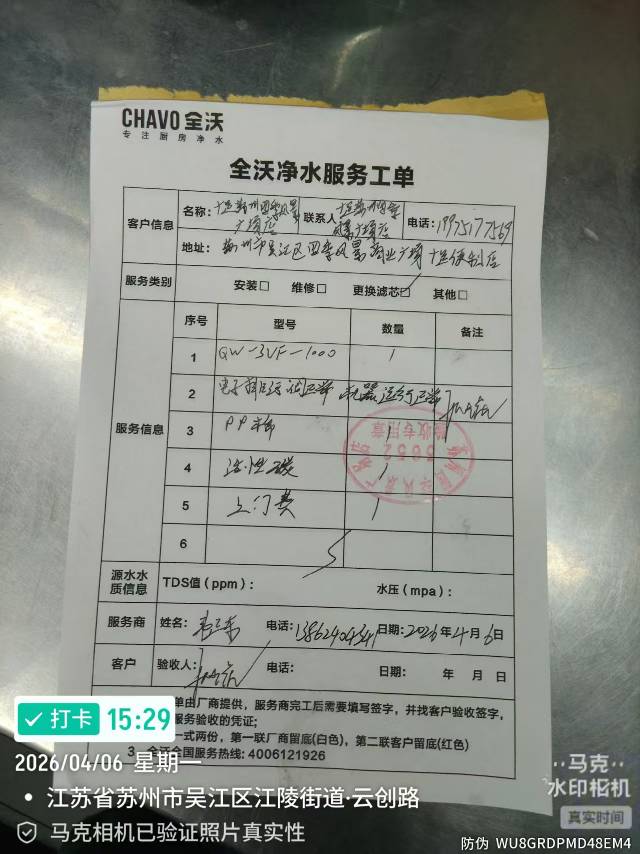 CHAVO 全沃
专注厨房净水
全沃净水服务工单
客户信息 名称: 联系人 电话: 19951577569
地址: 苏州市吴江区四季风景商业广场 七鲜便利店
服务类别 安装□ 维修□ 更换滤芯☑ 其他□
服务信息 序号 型号 数量 备注
1 QW-3UF-1000 1
2 机器运行正常
3 PP棉 1
4 活性碳 1
5 上门费 1
6
源水水质信息 TDS值(ppm): 水压(mpa):
服务商 姓名: 电话: 日期: 2026年4月6日
客户 验收人: 电话: 日期: 年 月 日
单由厂商提供,服务商完工后需要填写签字,并找客户验收签字,
服务验收的凭证;
一式两份,第一联厂商留底(白色),第二联客户留底(红色)
3、全沃全国服务热线: 4006121926
验收专用章
3652
打卡 15:29
2026/04/06 星期一
江苏省苏州市吴江区江陵街道·云创路
马克相机已验证照片真实性
马克
水印相机
真实时间
防伪 WU8GRDPMD48EM4